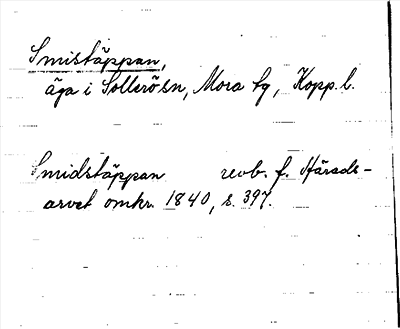 Smistäppan,
äga i Sollerö sn, Mora tg, Kopp. l.
Smidstäppan revb. f. Härads-
arvet omkr 1840, s. 397.